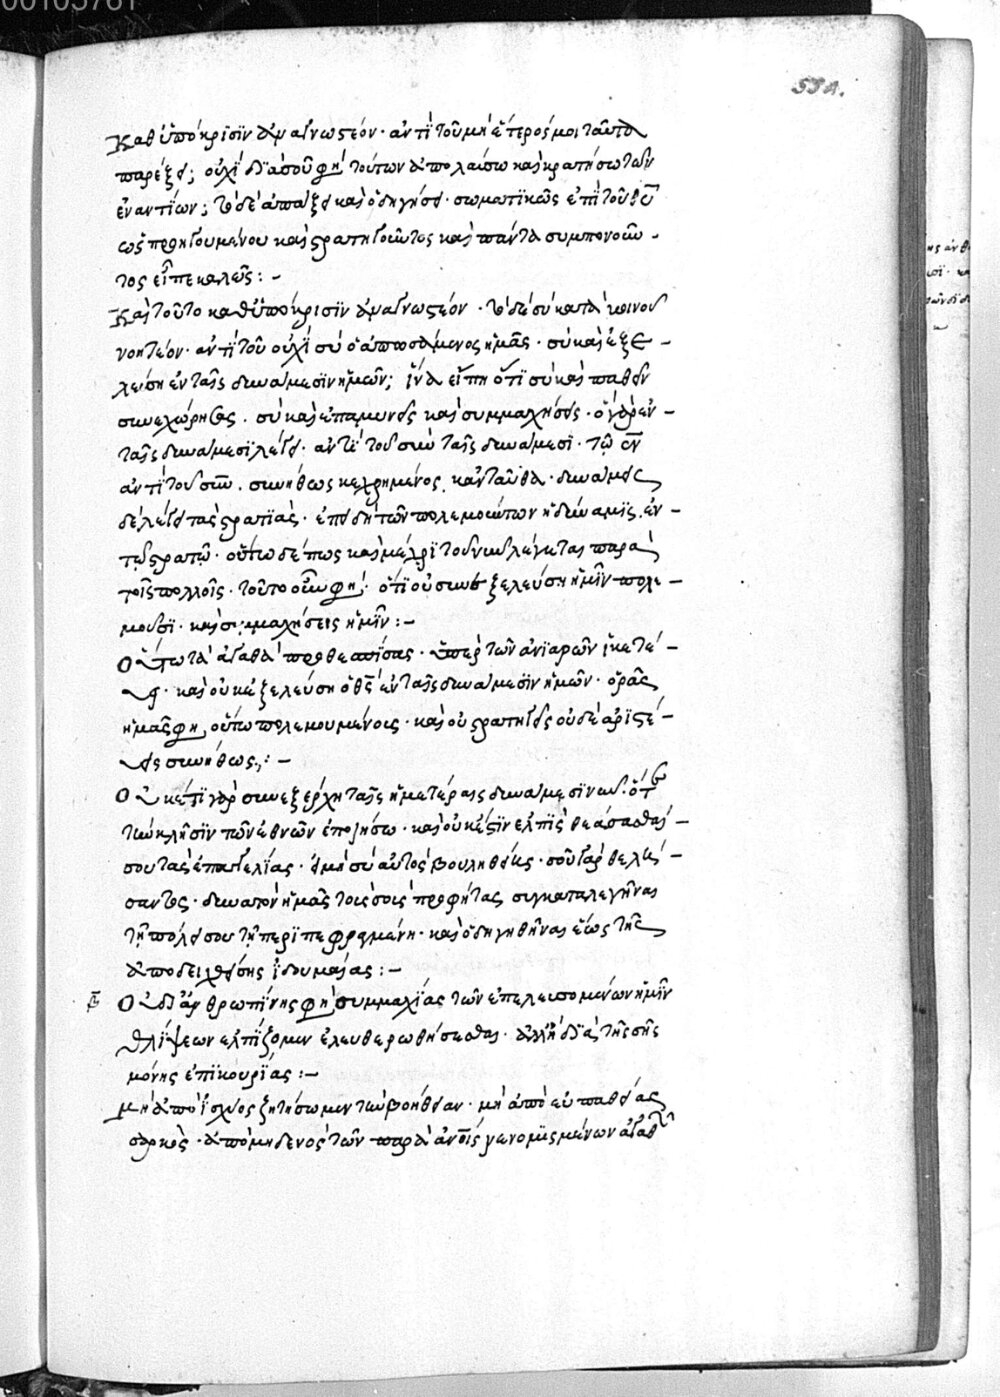 00105761
554.
Καθ' ὑπόκρισϊν ἀναγνωστέον· ἀντὶ τοῦ μὴ ἕτερός μοι ταῦτα
παρέξει; οὐχὶ διὰ σοῦ φη τούτων ἀπολαύσω καὶ κρατήσω τῶν
ἐναντίων; τὸ δὲ ἀπάξει καὶ ὁδηγήσει· σωματικῶς ἐπὶ τοῦ θυ
ὡς προηγουμένου καὶ στρατηγοῦντος καὶ πάντα συμπονοῦν-
τος εἶπε καλῶς:-
Καὶ τοῦτο καθ' ὑπόκρισϊν ἀναγνωστέον· τὸ δὲ σὺ κατὰ κοινοῦ
νοητέον· ἀντὶ τοῦ οὐχὶ σὺ ὁ ἀπωσάμενος ἡμᾶς· σὺ καὶ ἐξε-
λεύση ἐν ταῖς δυνάμεσϊν ἡμῶν; ἵνα εἴπη ὅτι σὺ καὶ παθεῖν
συνεχώρησας. σὺ καὶ ἐπαμυνεῖς καὶ συμμαχήσεις· ὁ γὰρ ἐν-
ταῖς δυνάμεσϊ λέγει· ἀντὶ τοῦ σὺν ταῖς δυνάμεσι· τῷ ἐν
ἀντὶ τοῦ σὺν. συνήθως κεχρημένος κἀνταῦθα· δυνάμεις
δὲ λέγει τὰς στρατϊάς· ἐπειδὴ τῶν πολεμούντων ἡ δύναμϊς ἐν-
τῷ στρατῷ· οὕτω δέ πως καὶ μέχρϊ τοῦ νῦν λέγεται παρὰ
τοῖς πολλοῖς· τοῦτο οὖν φη· ὅτϊ οὐ συνεξελεύση ἡμῖν πολε-
μοῦσϊ· καὶ συμμαχήσεις ἡμῖν:-
Οὕτω τὰ ἀγαθὰ προθεσπίσας· ὑπὲρ τῶν ἀνϊαρῶν ἱκετεύ-
ει· καὶ οὐκ ἐξελεύση ὁ θς ἐν ταῖς δυνάμεσϊν ἡμῶν· ὁρᾶς
ἡμᾶς φη, οὕπω πολεμουμένοις· καὶ οὐ στρατηγεῖς οὐδὲ ἀριστεύ-
εις συνήθως:-
Οὐκέτϊ γὰρ συνεξέρχη ταῖς ἡμετέραις δυνάμεσϊ νῦν· ὅτ
τὴν κλῆσϊν τῶν ἐθνῶν ἐποιήσω· καὶ οὐκ ἔστϊν ἐλπὶς θεάσασθαί-
σου τὰς ἐπαγγελίας· εἰ μὴ σὺ αὐτὸς βουληθείης· σοῦ γὰρ θελή-
σαντος· δυνατὸν ἡμᾶς τοῖς σοῖς προφήταις συγκαταλεγῆναι
τῇ πόλει σου τῇ περϊπεφραγμένη· καὶ ὁδηγηθῆναι ἕως τῆς
ἀποδειχθείσης ἰδουμαίας:-
Οὐ δι' ἀνθρωπίνης φη συμμαχίας τῶν ἐπελευσομένων ἡμῖν
θλίψεων ἐλπίζομεν ἐλευθερωθήσεσθαι· ἀλλὰ διὰ τῆς σῆς
μόνης ἐπϊκουρίας:-
μὴ ἀπὸ ἰσχύος ζητήσωμεν τὴν βοήθειαν· μὴ ἀπὸ εὐπαθείας
σαρκός· ἀπὸ μηδενὸς τῶν παρὰ ἀνοις νενομϊσμένων ἀγαθῶν